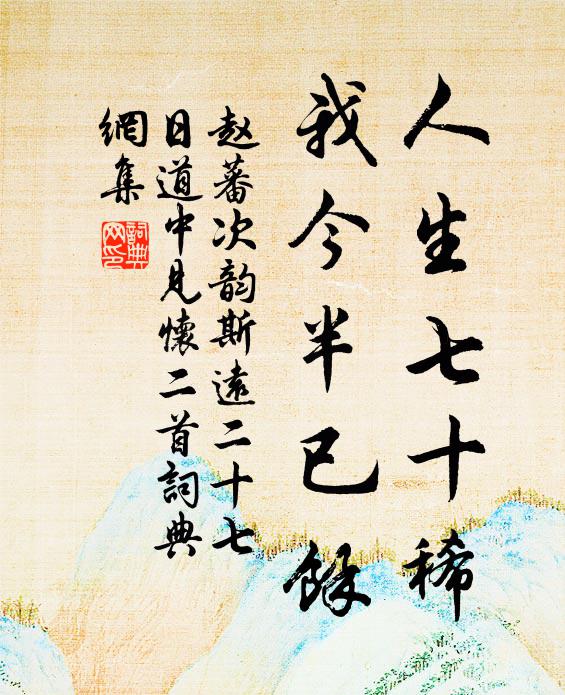 人生七十稀
我今半已餘
赵蕃次韵斯遠二十七
日道中見懷二首詞典
網集
詞典
网印